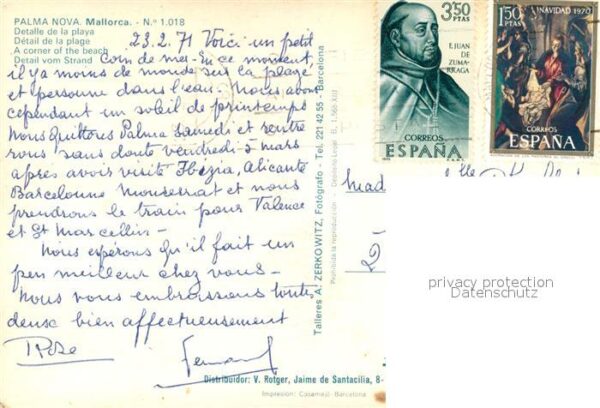 PALMA NOVA. Mallorca. - N.º 1.018
Detalle de la playa
Détail de la plage
A corner of the beach
Detail vom Strand
23.2.71 Voici un petit
Coin de mer. En ce moment,
il y a moins de monde sur la plage,
et personne dans l'eau. Nous avons
cependant un soleil de printemps
Nous quittons Palma Samedi et rentre
rons sans doute vendredi 5 mars
après avoir visité Ibiza, Alicante
Barcelonne Monserrat et nous
prendrons le train pour Valence
et St Marcellin -
Nous espérons qu'il fait un
peu meilleur chez vous -
Nous vous embrassons toutes
deux bien affectueusement
Rose
Fernand
Talleres A. ZERKOWITZ, Fotógrafo - Tel. 221 42 55 - Barcelona
Prohibida la reproducción
Depósito Legal B.
Distribuidor: V. Rotger, Jaime de Santacilia, 8-
Impresión: Casamajó-Barcelona
3,50
PTAS
F. JUAN
DE
ZUMA-
RRAGA
CORREOS
ESPAÑA
1,50
PTAS
NAVIDAD 1970
CORREOS
ESPAÑA
privacy protection
Datenschutz